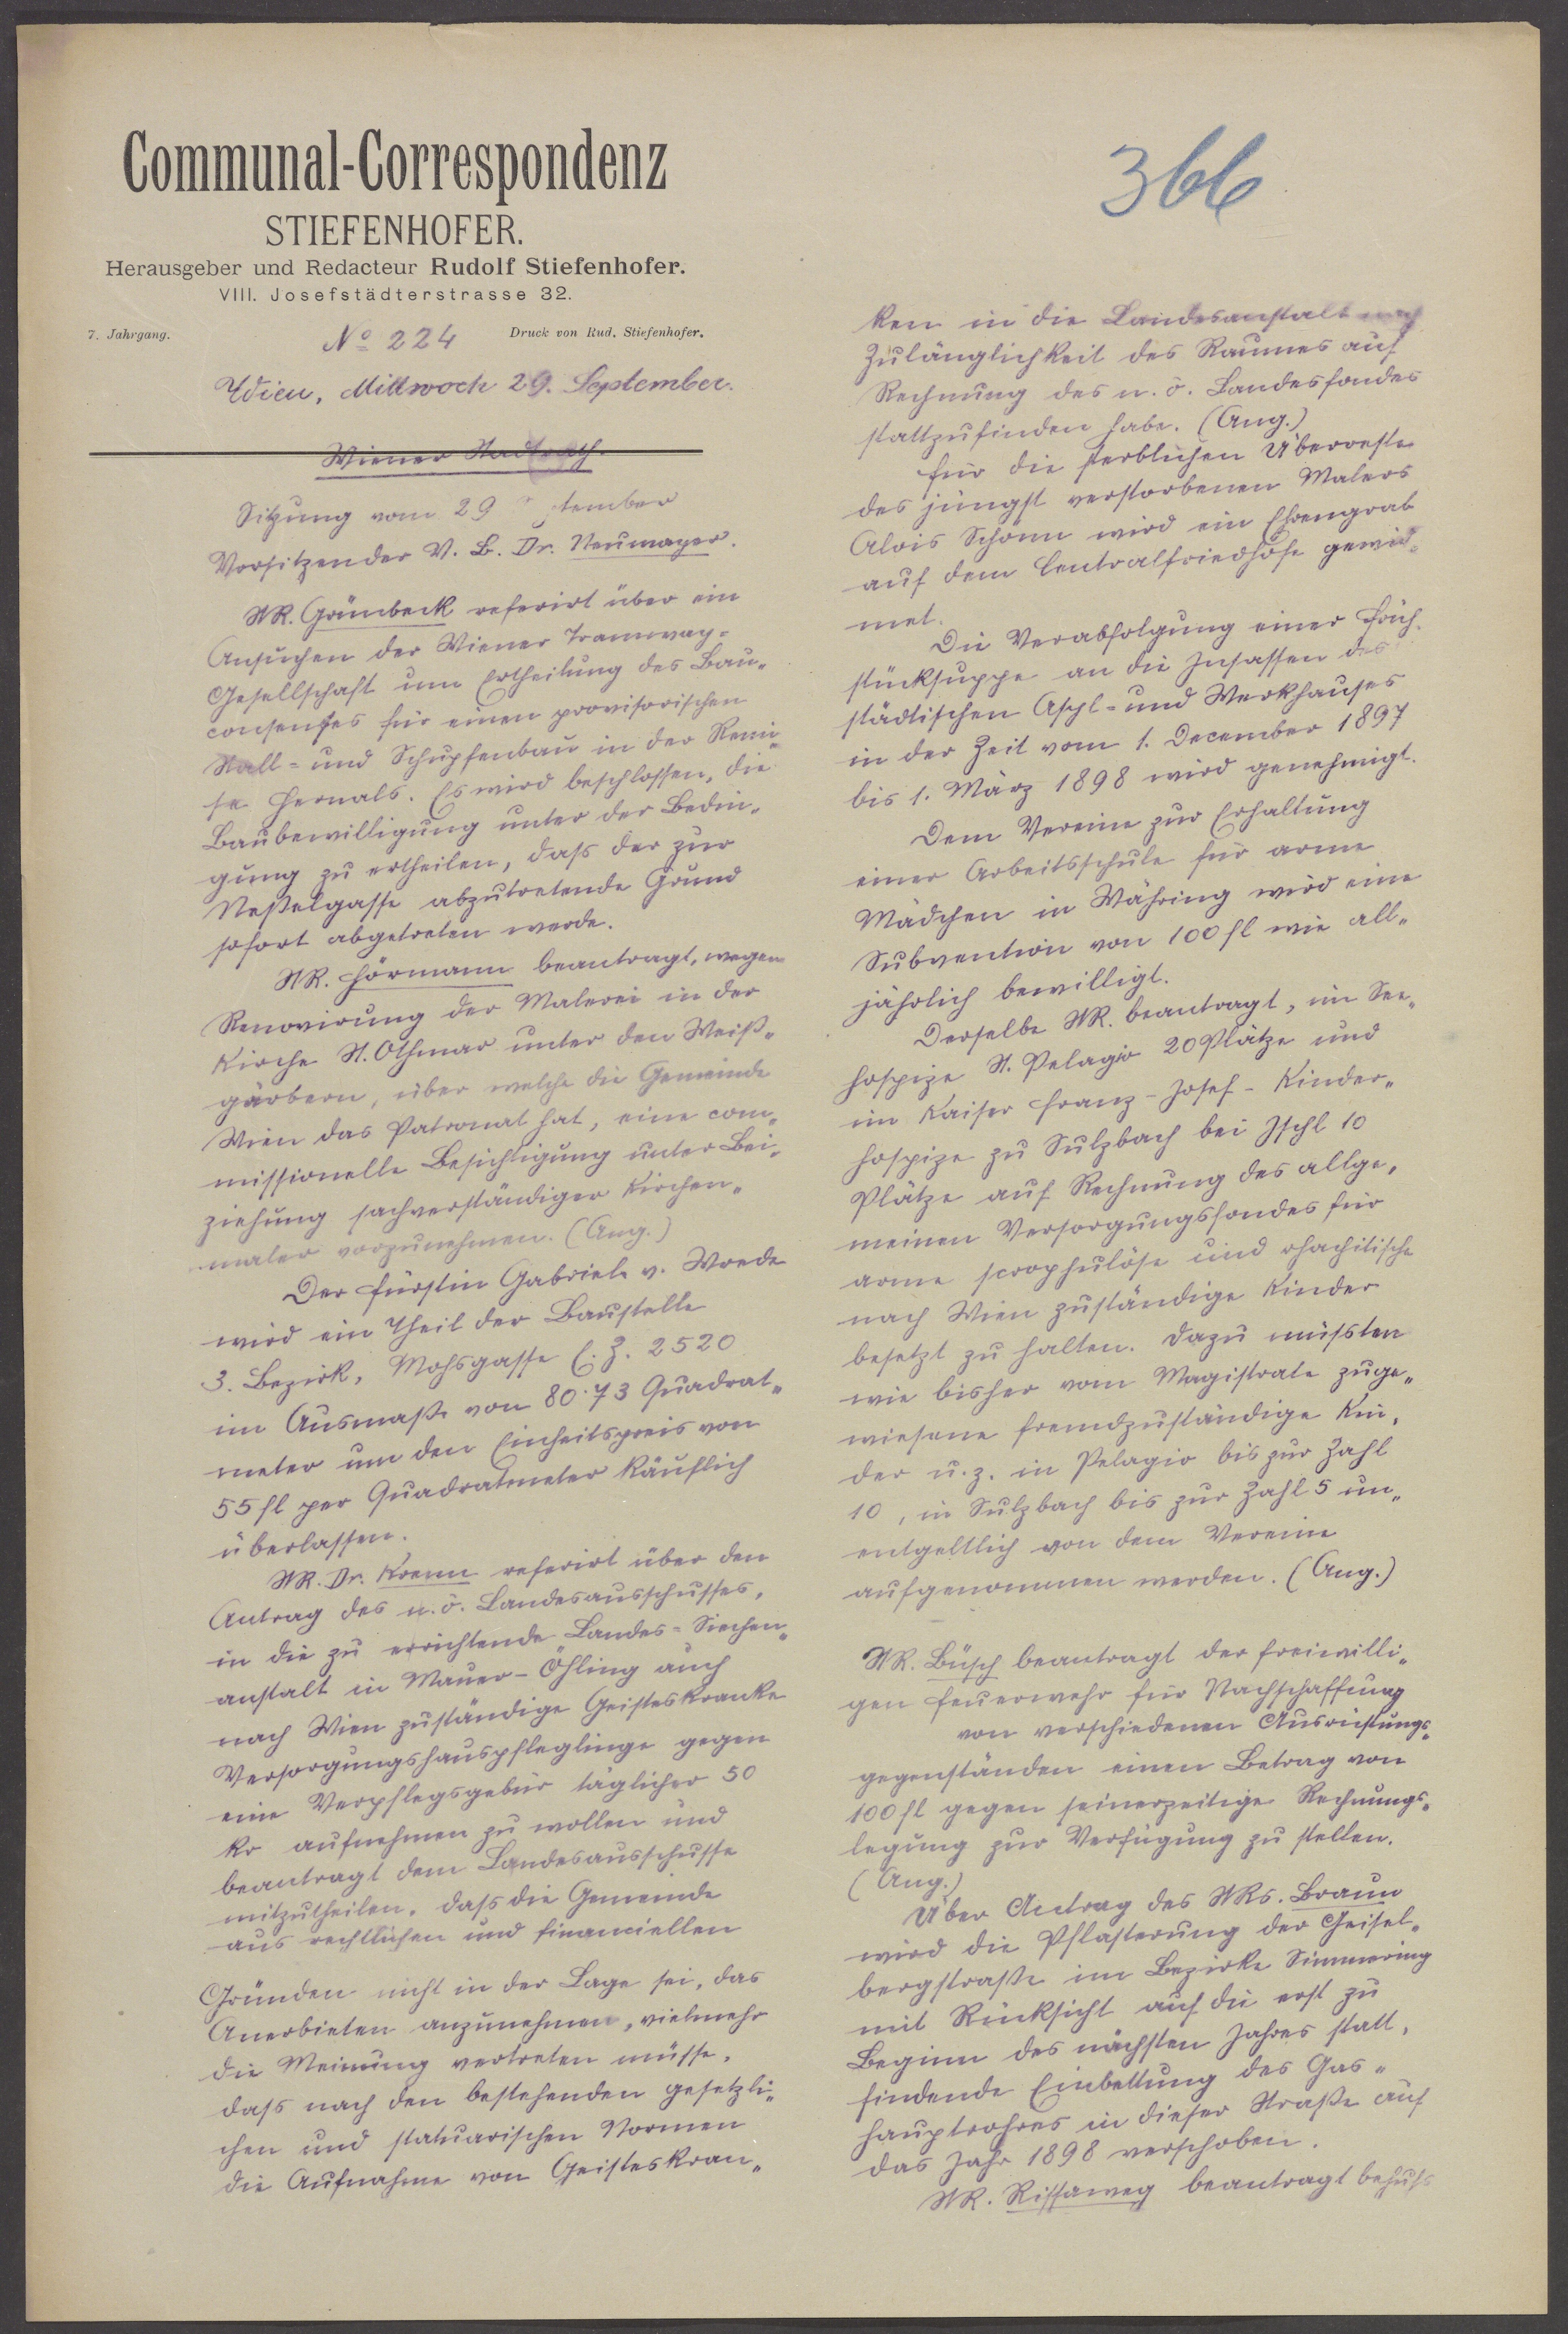 Communal-Correspondenz
STIEFENHOFER.
Herausgeber und Redacteur Rudolf Stiefenhofer.
VIII. Josefstädterstrasse 32.
7. Jahrgang.
No 224
Druck von Rud. Stiefenhofer.
Wien, Mittwoch 29. September.
Wiener Stadtrath.
Sitzung vom 29 September
Vorsitzender V. B. Dr. Neumayer.
StR. Grünbeck referirt über ein
Ansuchen der Wiener Tramway-
Gesellschaft um Ertheilung des Bau„
consenses für einen provisorischen
Stall- und Schupfenbau in der Remi„
se Hernals. Es wird beschlossen, die
Baubewilligung unter der Bedin„
gung zu ertheilen, dass der zur
Nesselgasse abzutretende Grund
sofort abgetreten werde.
StR. Hörmann beantragt, wegen
Renovirung der Malerei in der
Kirche St. Othmar unter den Weiß„
gärbern, über welche die Gemeinde
Wien das Patronat hat, eine com„
missionelle Besichtigung unter Bei„
ziehung sachverständiger Kirchen„
maler vorzunehmen. (Ang.)
Der Fürstin Gabriele v. Wrede
wird ein Theil der Baustelle
3. Bezirk, Mohsgasse E. Z. 2520
im Ausmaße von 80.73 Quadrat„
meter um den Einheitspreis von
55 fl per Quadratmeter käuflich
überlassen.
StR. Dr. Krenn referirt über den
Antrag des n. ö. Landesausschusses,
in die zu errichtende Landes-Siechen„
anstalt in Mauer-Öhling auch
nach Wien zuständige Geisteskranke
Versorgungshauspfleglinge gegen
eine Verpflegsgebür täglicher 50
kr aufnehmen zu wollen und
beantragt dem Landesausschusse
mitzutheilen, dass die Gemeinde
aus rechtlichen und financiellen
Gründen nicht in der Lage sei, das
Anerbieten anzunehmen, vielmehr
die Meinung vertreten müsse,
dass nach den bestehenden gesetzli„
chen und statuarischen Normen
die Aufnahme von Geisteskran„
366
ken in die Landesanstalt nach
Zulänglichkeit des Raumes auf
Rechnung des n. ö. Landesfondes
stattzufinden habe. (Ang.)
Für die sterblichen Überreste
des jüngst verstorbenen Malers
Alois Schönn wird ein Ehrengrab
auf dem Centralfriedhofe gewid„
met.
Die Verabfolgung einer Früh„
stücksuppe an die Insassen des
städtischen Asyl- und Werkhauses
in der Zeit vom 1. December 1897
bis 1. März 1898 wird genehmigt.
Dem Vereine zur Erhaltung
einer Arbeitsschule für arme
Mädchen in Währing wird eine
Subvention von 100 fl wie all„
jährlich bewilligt.
Derselbe StR. beantragt, im See„
hospize St. Pelagio 20 Plätze und
im Kaiser Franz-Josef-Kinder„
hospize zu Sulzbach bei Ischl 10
Plätze auf Rechnung des allge„
meinen Versorgungsfondes für
arme scrophulöse und rhachitische
nach Wien zuständige Kinder
besetzt zu halten. Dazu müssten
wie bisher vom Magistrate zuge„
wiesene fremdzuständige Kin„
der u. z. in Pelagio bis zur Zahl
10, in Sulzbach bis zur Zahl 5 un„
entgeltlich von dem Vereine
aufgenommen werden. (Ang.)
StR. Büsch beantragt der freiwilli„
gen Feuerwehr für Nachschaffung
von verschiedenen Ausrüstungs„
gegenständen einen Betrag von
100 fl gegen seinerzeitige Rechnungs„
legung zur Verfügung zu stellen.
(Ang.)
Über Antrag des StRs. Braun
wird die Pflasterung der Geisel„
bergstraße im Bezirke Simmering
mit Rücksicht auf die erst zu
Beginn des nächsten Jahres statt„
findende Einbettung des Gas„
hauptrohres in dieser Straße auf
das Jahr 1898 verschoben.
StR. Rissaweg beantragt behufs